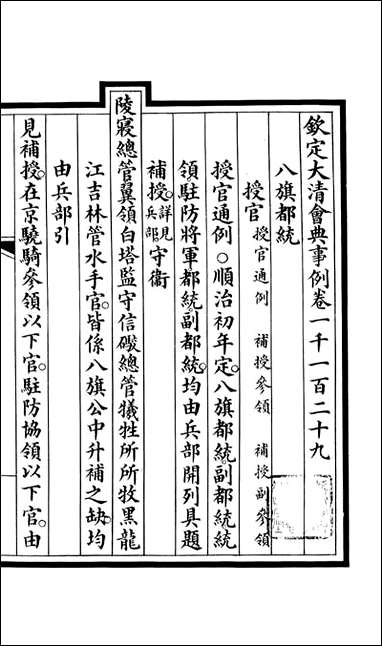 欽定大清會典事例卷一千一百二十九
八旗都統
授官 授官通例 補授參領 補授副參領
授官通例○順治初年定。八旗都統副都統統
領駐防將軍都統。副都統。均由兵部開列具題
補授。詳見兵部守衞
陵寢總管翼領白塔監守信礟總管犧牲所所牧黑龍
江吉林管水手官。皆係八旗公中升補之缺。均
由兵部引
見補授。在京驍騎參領以下官。駐防協領以下官。由